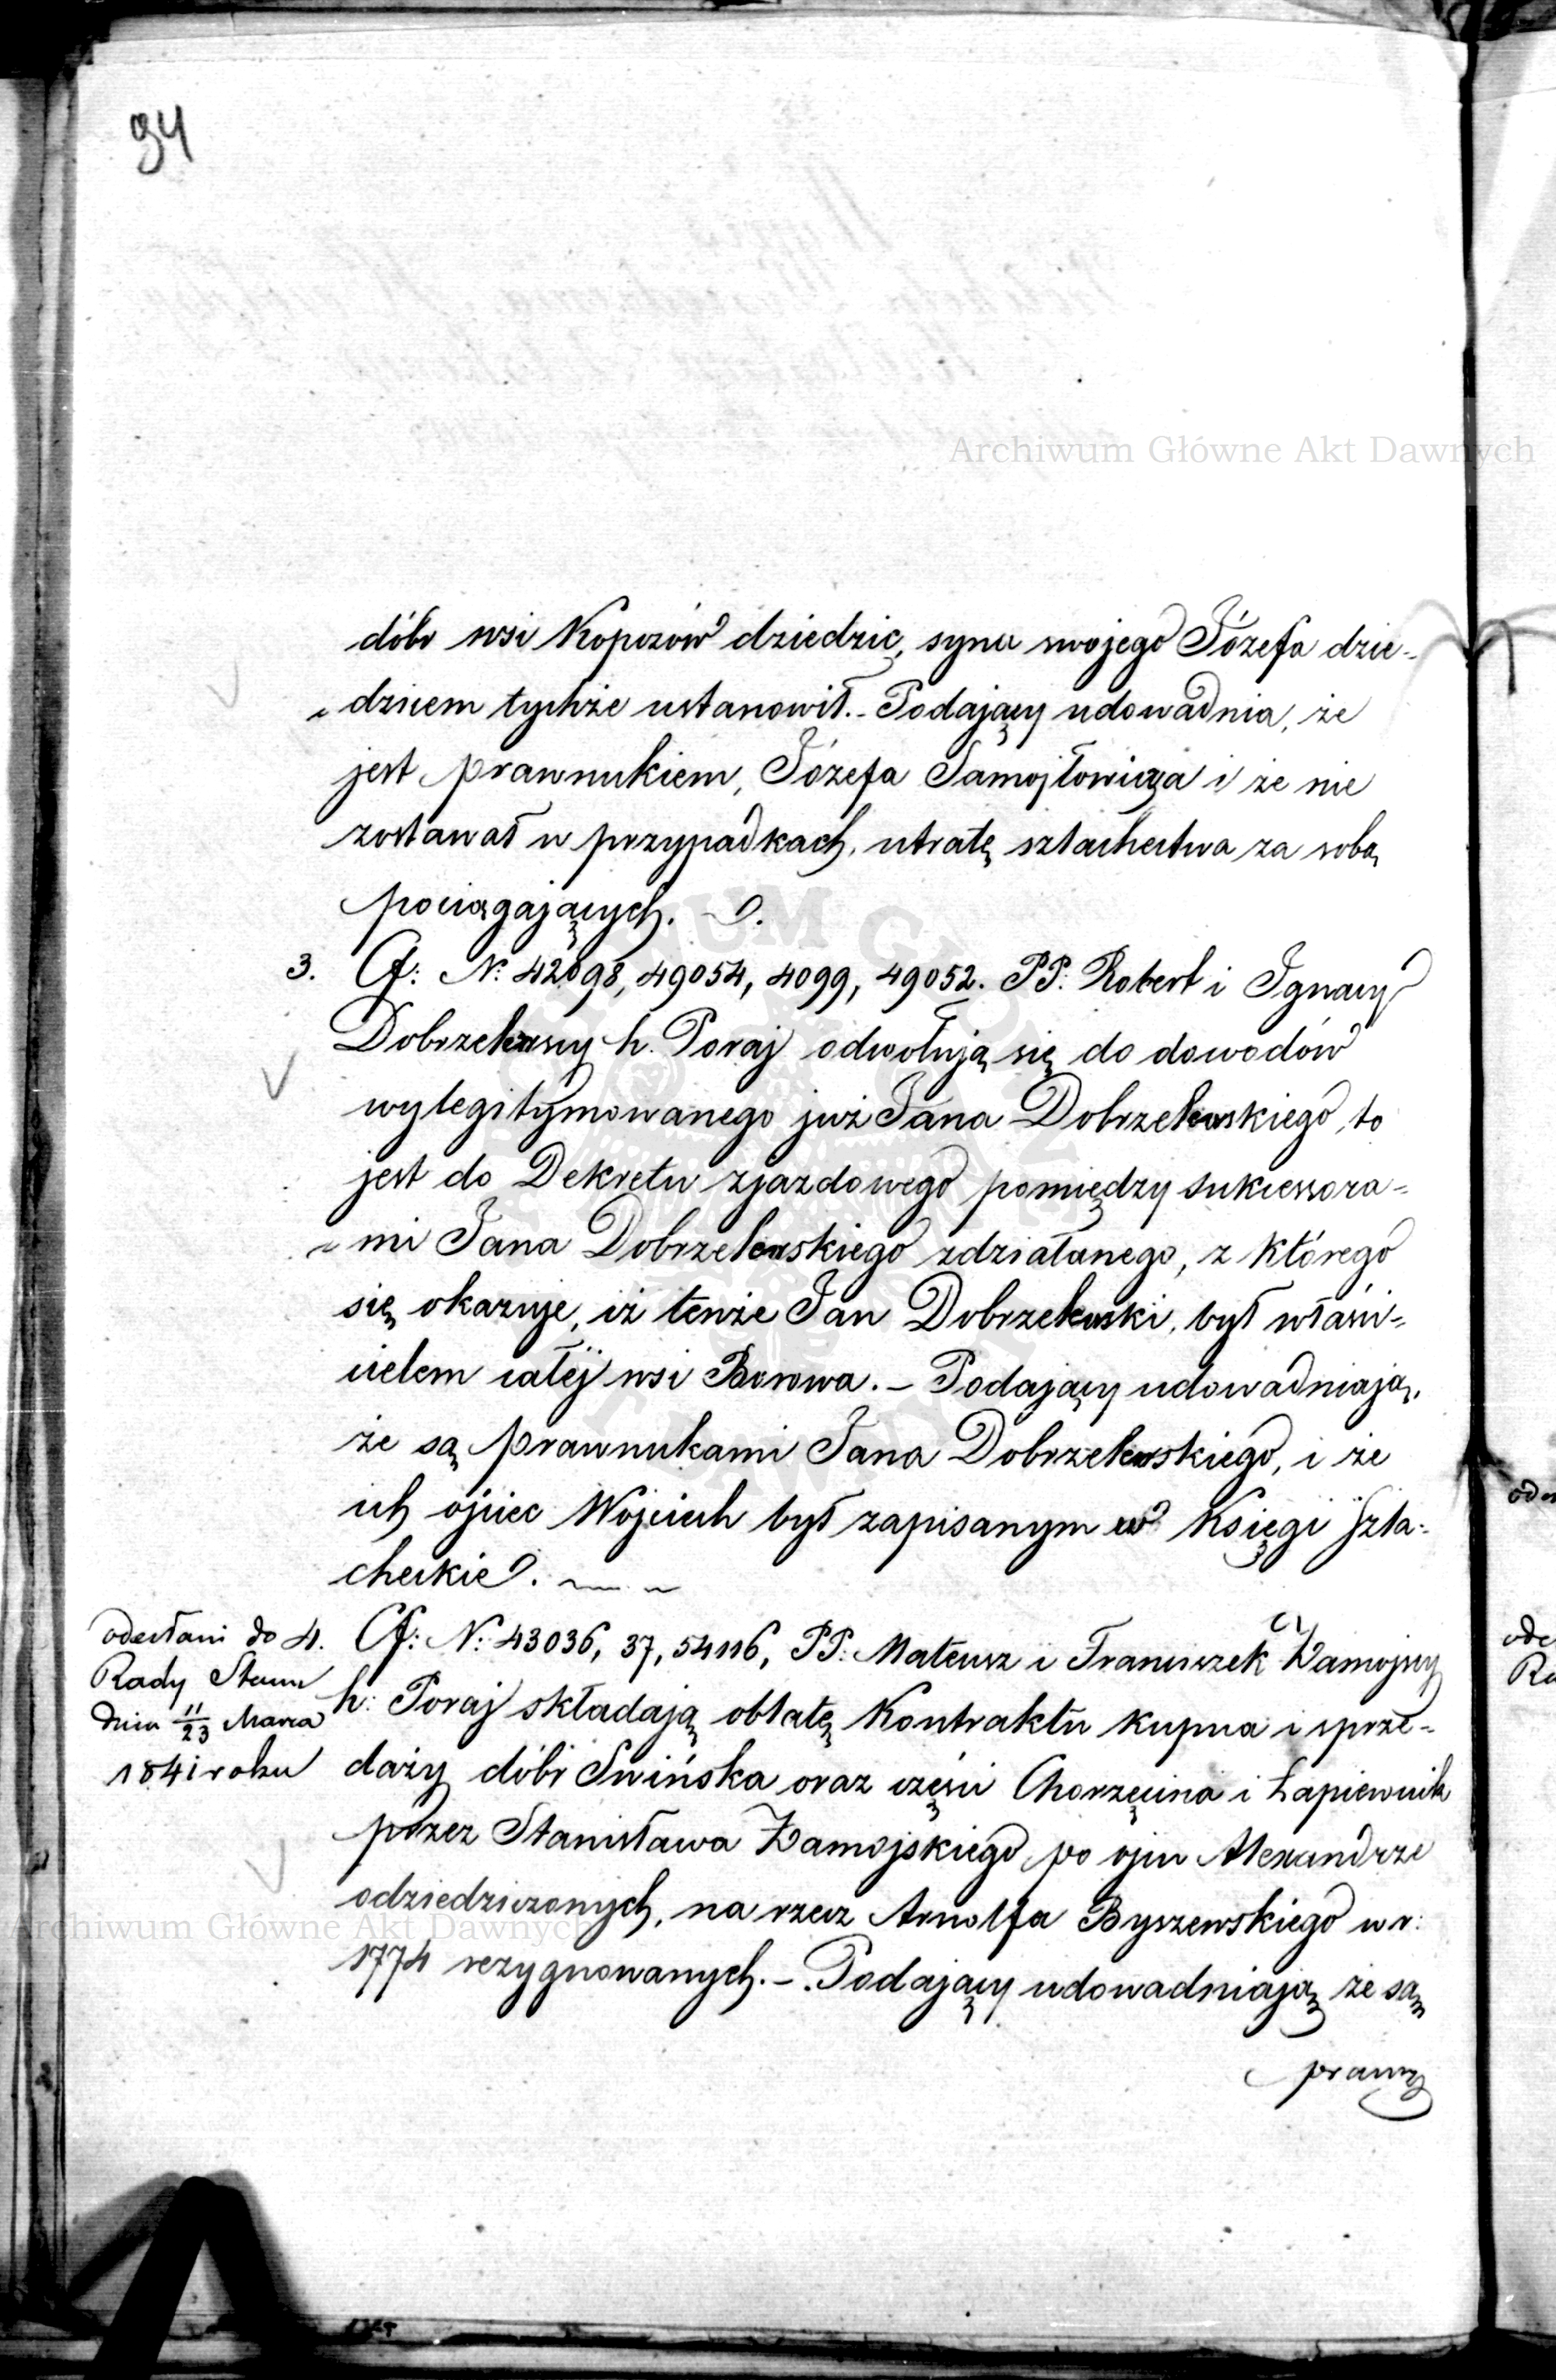 94
Archiwum Główne Akt Dawnych
dóbr wsi Kopozów dziedzic, syna swojego Józefa dzie-
dzicem tychże ustanowił. - Podający udowadnia, że
jest prawnukiem, Józefa Samojłowicza i że nie
zostawał w przypadkach, utratę szlachectwa za sobą
pociągających.
3. Cf: N: 42098, 49054, 4099, 49052. PP: Robert i Ignacy
Dobrzelewscy h. Poraj odwołują się do dowodów
wylegitymowanego już Jana Dobrzelewskiego, to
jest do Dekretu zjazdowego pomiędzy sukcessora-
mi Jana Dobrzelewskiego zdziałanego, z którego
się okazuje, iż tenże Jan Dobrzelewski, był właści-
cielem całej wsi Borowa. - Podający udowadniają,
że są prawnukami Jana Dobrzelewskiego, i że
ich ojciec Wojciech był zapisanym w Księgi szla-
checkie.
odesłani do
Rady Stanu
dnia 11/23 Marca
1841 roku
4. Cf: N: 43036, 37, 54116, PP: Mateusz i Franciszek Zamojscy
h: Poraj składają oblatę Kontraktu kupna i sprze-
daży dóbr Swińska oraz części Chorzęcina i Łapiewnik
przez Stanisława Zamojskiego po ojcu Alexandrze
odziedziczonych, na rzecz Arnolfa Byszewskiego w r:
Archiwum Główne Akt Dawnych
1774 rezygnowanych. - Podający udowadniają że są
praw